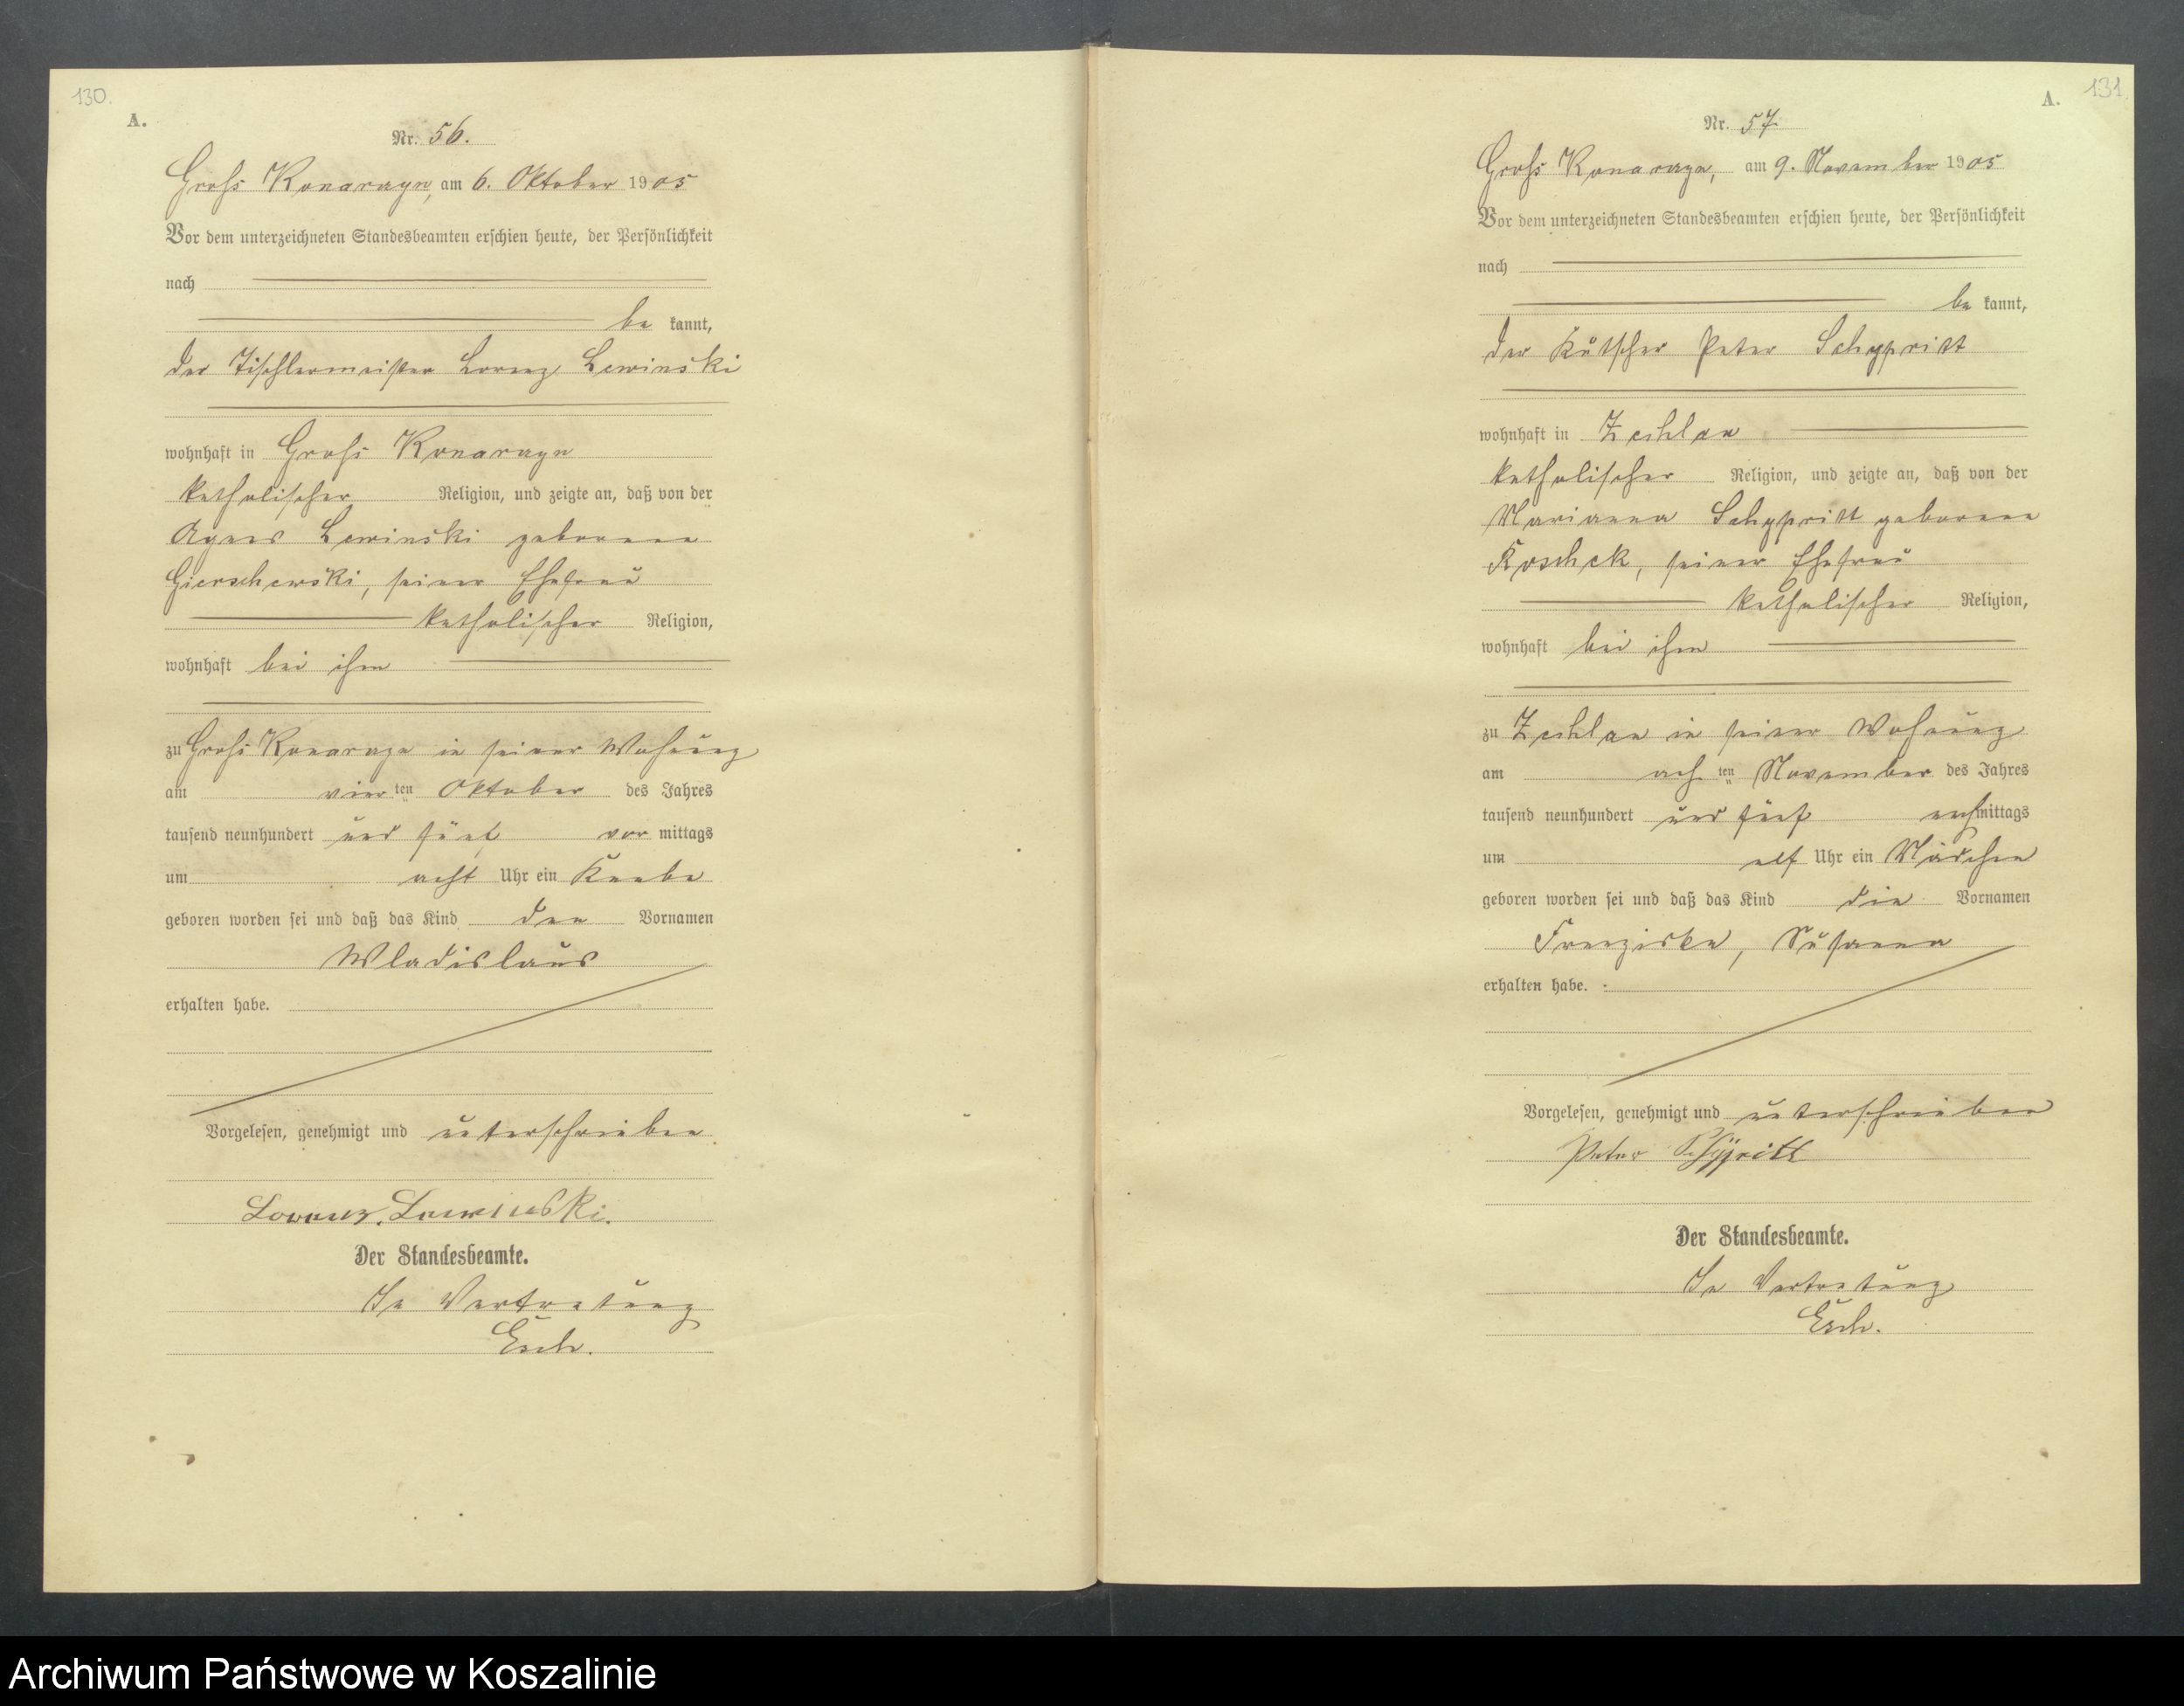 130.
A.
Nr. 56.
Gross Konarczyn, am 6. Oktober 1905
Vor dem unterzeichneten Standesbeamten erschien heute, der Persönlichkeit
nach
be kannt,
der Tischlermeister Lorenz Lewinski
wohnhaft in Gross Konarczyn
katholischer Religion, und zeigte an, daß von der
Agnes Lewinski geborene
Gierschewski, seiner Ehefrau
katholischer Religion,
wohnhaft bei ihm
zu Gross Konarczyn in seiner Wohnung
am vier ten Oktober des Jahres
tausend neunhundert und fünf vor mittags
um acht Uhr ein Knabe
geboren worden sei und daß das Kind den Vornamen
Wladislaus
erhalten habe.
Vorgelesen, genehmigt und unterschrieben
Lorenz. Lewinski.
Der Standesbeamte.
In Vertretung
131.
A.
Nr. 57.
Gross Konarczyn, am 9. November 1905
Vor dem unterzeichneten Standesbeamten erschien heute, der Persönlichkeit
nach
be kannt,
der Kutscher Peter
wohnhaft in Zechlau
katholischer Religion, und zeigte an, daß von der
Marianna geborene
Koschek, seiner Ehefrau
katholischer Religion,
wohnhaft bei ihm
zu Zechlau in seiner Wohnung
am ach ten November des Jahres
tausend neunhundert und fünf nachmittags
um elf Uhr ein Mädchen
geboren worden sei und daß das Kind die Vornamen
Franziska, Susanna
erhalten habe.
Vorgelesen, genehmigt und unterschrieben
Peter
Der Standesbeamte.
In Vertretung
Archiwum Państwowe w Koszalinie